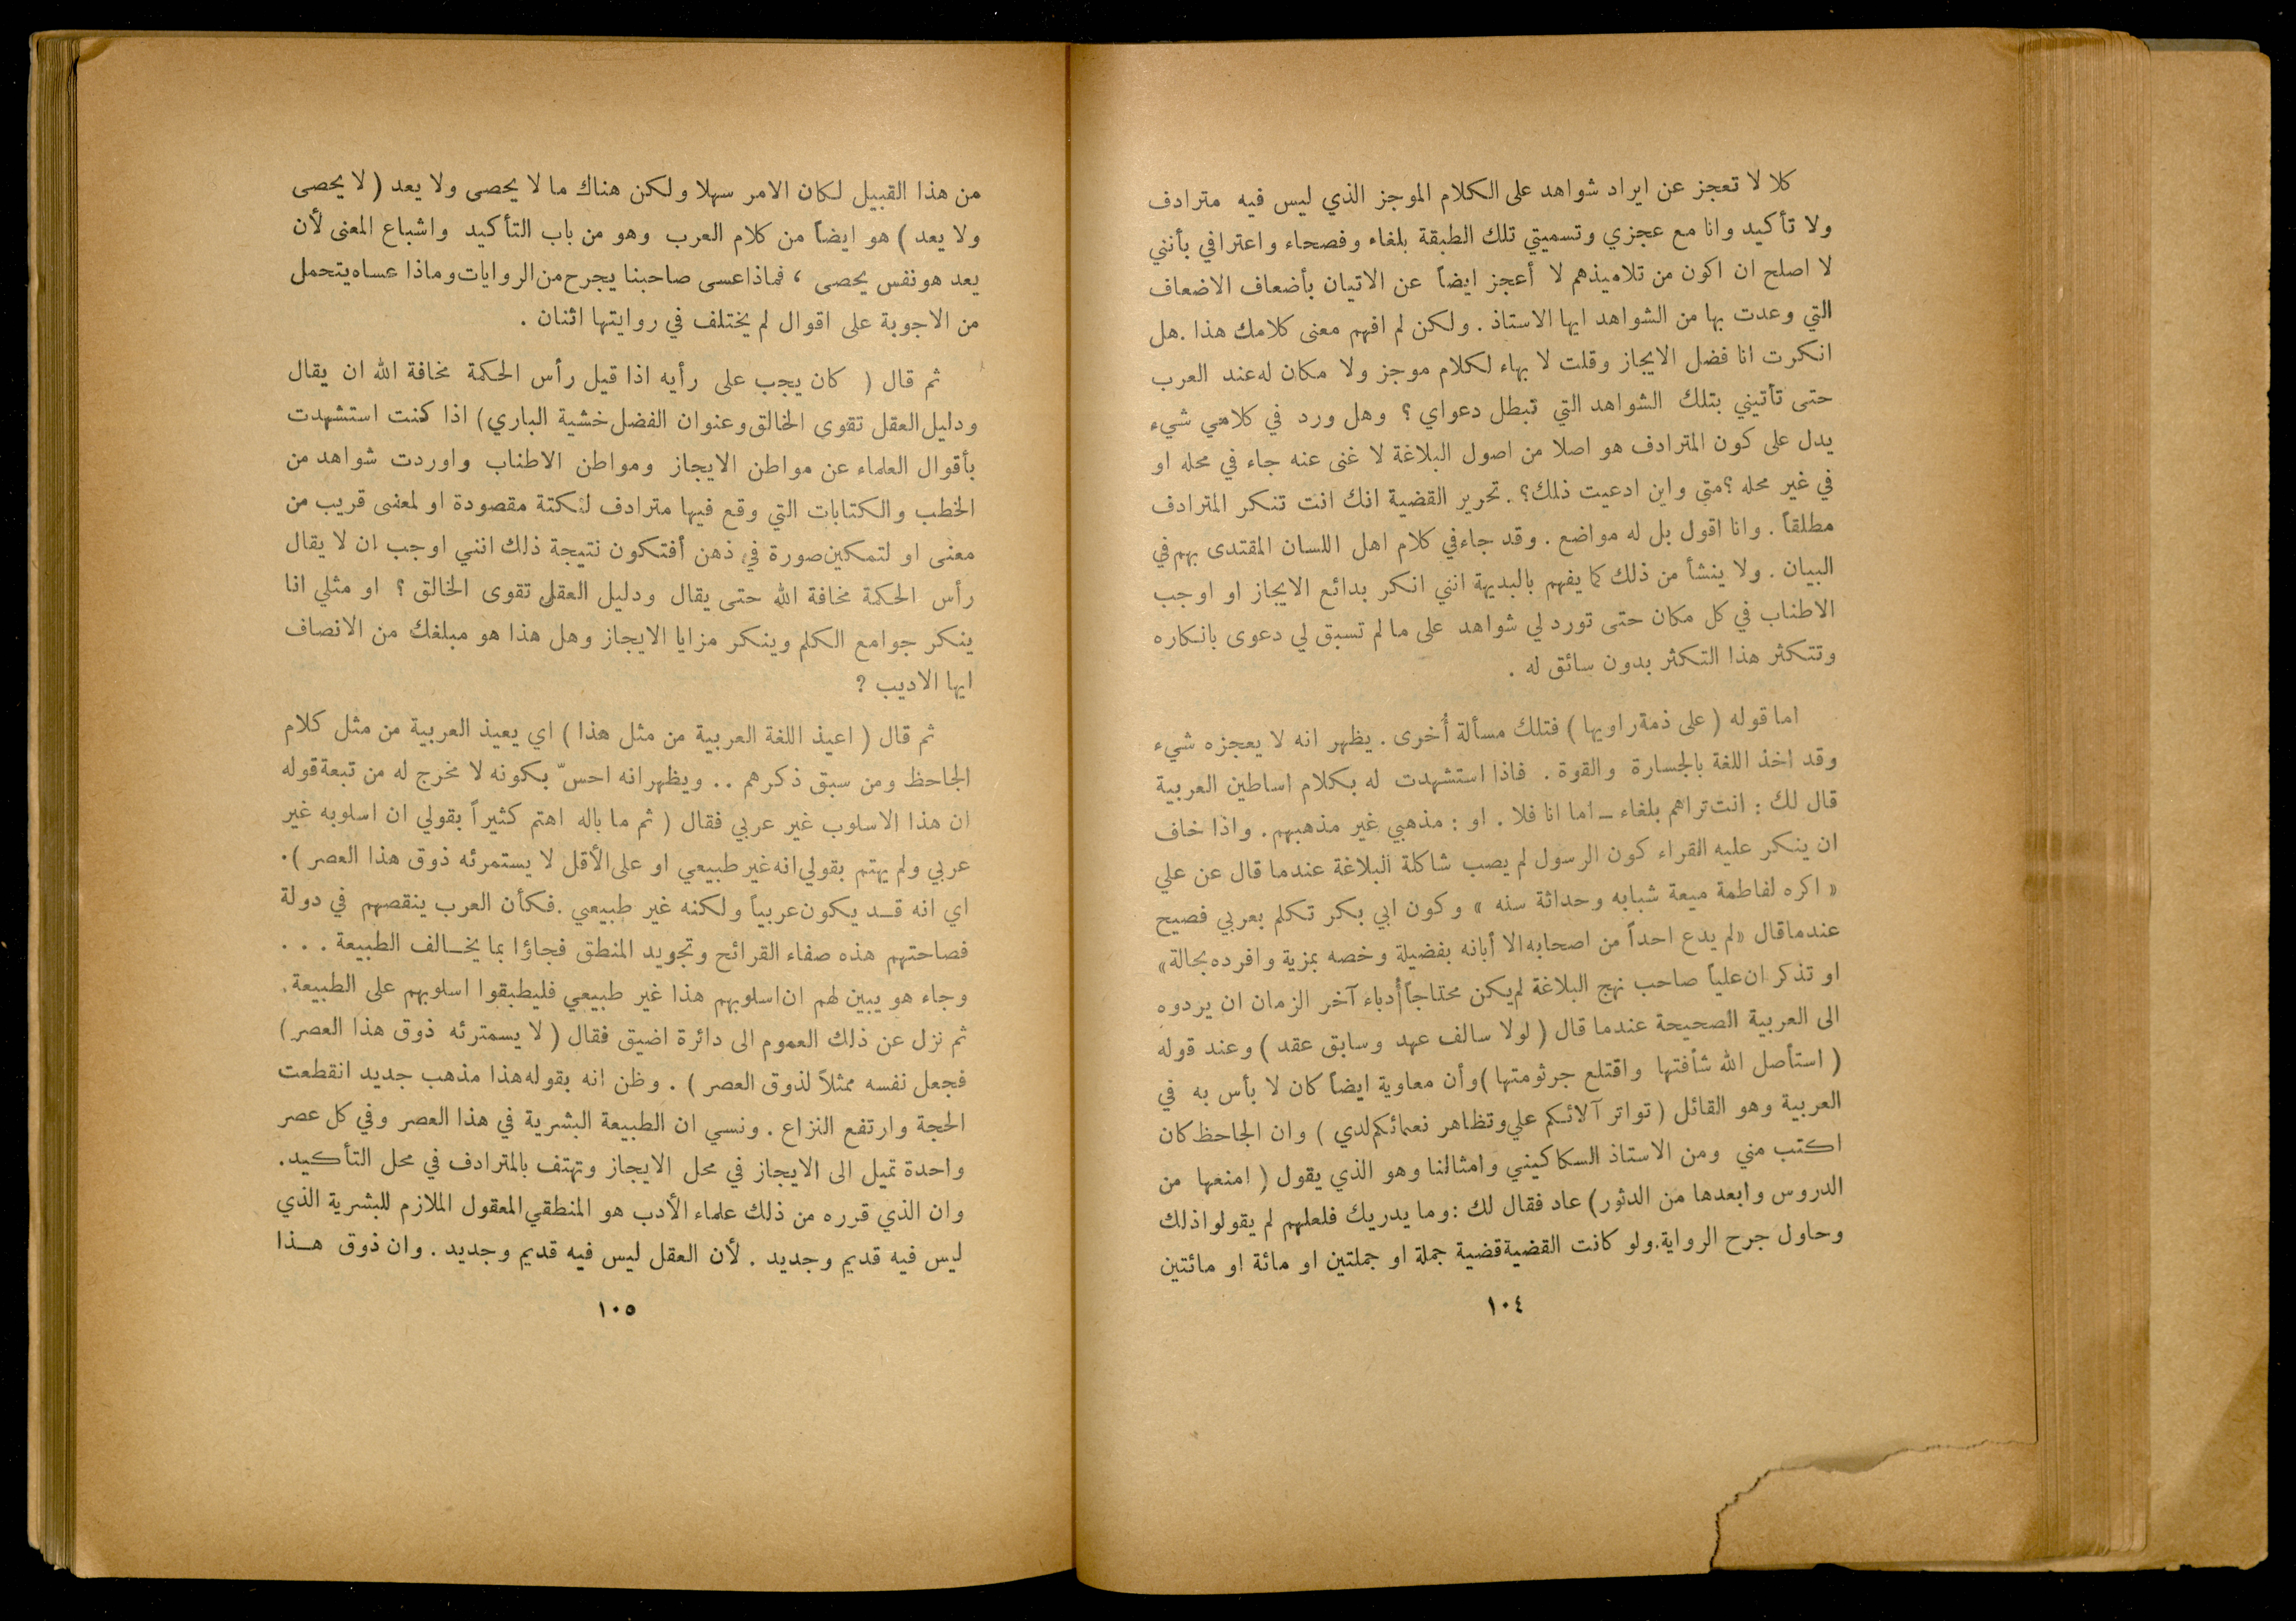 كلا لا تعجز عن ايراد شواهد على الكلام الموجز الذي ليس فيه مترادف
ولا تأكيد وانا مع عجزي وتسميتي تلك الطبقة بلغاء وفصحاء واعترافي بأنني
لا اصلح ان اكون من تلاميذهم لا أعجز ايضاً عن الاتيان بأضعاف الاضعاف
التي وعدت بها من الشواهد ايها الاستاذ . ولكن لم افهم معنى كلامك هذا . هل
انكرت انا فضل الايجاز وقلت لا بهاء لكلام موجز ولا مكان له عند العرب
حتى تأتيني بتلك الشواهد التي تبطل دعواي ؟ وهل ورد في كلامي شيء
يدل على كون المترادف هو اصلا من اصول البلاغة لا غنى عنه جاء في محله او
في غير محله ؟ متى واين ادعيت ذلك؟ . تحرير القضية انك انت تنكر المترادف
مطلقاً . وانا اقول بل له مواضع . وقد جاء في كلام اهل اللسان المقتدى بهم في
البيان . ولا ينشأ من ذلك كما يفهم بالبديهة انني انكر بدائع الايجاز او اوجب
الاطناب في كل مكان حتى تورد لي شواهد على ما لم تسبق لي دعوى بانكاره
وتتكثر هذا التكثر بدون سائق له .
اما قوله ( على ذمة راويها ) فتلك مسألة أُخرى . يظهر انه لا يعجزه شيء
وقد اخذ اللغة بالجسارة والقوة . فاذا استشهدت له بكلام اساطين العربية
قال لك : انت تراهم بلغاء ــ اما انا فلا . او : مذهبي غير مذهبهم . واذا خاف
ان ينكر عليه القراء كون الرسول لم يصب شاكلة البلاغة عندما قال عن علي
« اكره لفاطمة ميعة شبابه وحداثة سنه » وكون ابي بكر تكلم بعربي فصيح
عندما قال «لم يدع احداً من اصحابه الا أبانه بفضيلة وخصه بمزية وافرده بحالة»
او تذكر ان علياً صاحب نهج البلاغة لم يكن محتاجاً أُدباء آخر الزمان ان يردوه
الى العربية الصحيحة عندما قال ( لولا سالف عهد وسابق عقد ) وعند قوله
( استأصل الله شأفتها واقتلع جرثومتها ) وأن معاوية ايضاً كان لا بأس به في
العربية وهو القائل ( تواتر آلائكم علي وتظاهر نعمائكم لدي ) وان الجاحظ كان
اكتب مني ومن الاستاذ السكاكيني وامثالنا وهو الذي يقول ( امنعها من
الدروس وابعدها من الدثور ) عاد فقال لك : وما يدريك فلعلهم لم يقولوا ذلك
وحاول جرح الرواية . ولو كانت القضية قضية جملة او جملتين او مائة او مائتين
١٠٤
من هذا القبيل لكان الامر سهلا ولكن هناك ما لا يحصى ولا يعد ( لا يحصى
ولا يعد ) هو ايضاً من كلام العرب وهو من باب التأكيد واشباع المعنى لأن
يعد هو نفس يحصى ، فماذا عسى صاحبنا يجرح من الروايات وماذا عساه يتحمل
من الاجوبة على اقوال لم يختلف في روايتها اثنان .
ثم قال ( كان يجب على رأيه اذا قيل رأس الحكمة مخافة الله ان يقال
ودليل العقل تقوى الخالق وعنوان الفضل خشية الباري ) اذا كنت استشهدت
بأقوال العلماء عن مواطن الايجاز ومواطن الاطناب واوردت شواهد من
الخطب والكتابات التي وقع فيها مترادف لنكتة مقصودة او لمعنى قريب من
معنى او لتمكين صورة في ذهن أفتكون نتيجة ذلك انني اوجب ان لا يقال
رأس الحكمة مخافة الله حتى يقال ودليل العقل تقوى الخالق ؟ او مثلي انا
ينكر جوامع الكلم وينكر مزايا الايجاز وهل هذا هو مبلغك من الانصاف
ايها الاديب ؟
ثم قال ( اعيذ اللغة العربية من مثل هذا ) اي يعيذ العربية من مثل كلام
الجاحظ ومن سبق ذكرهم .. ويظهر انه احسّ بكونه لا مخرج له من تبعة قوله
ان هذا الاسلوب غير عربي فقال ( ثم ما باله اهتم كثيراً بقولي ان اسلوبه غير
عربي ولم يهتم بقولي انه غير طبيعي او على الأقل لا يستمرئه ذوق هذا العصر ) .
اي انه قــد يكون عربياً ولكنه غير طبيعي . فكأن العرب ينقصهم في دولة
فصاحتهم هذه صفاء القرائح وتجويد المنطق فجاؤا بما يخــالف الطبيعة . . .
وجاء هو يبين لهم ان اسلوبهم هذا غير طبيعي فليطبقوا اسلوبهم على الطبيعة .
ثم نزل عن ذلك العموم الى دائرة اضيق فقال ( لا يسمترئه ذوق هذا العصر )
فجعل نفسه ممثلاً لذوق العصر ) . وظن انه بقوله هذا مذهب جديد انقطعت
الحجة وارتفع النزاع . ونسي ان الطبيعة البشرية في هذا العصر وفي كل عصر
واحدة تميل الى الايجاز في محل الايجاز وتهتف بالمترادف في محل التأكيد .
وان الذي قرره من ذلك علماء الأدب هو المنطقي المعقول الملازم للبشرية الذي
ليس فيه قديم وجديد . لأن العقل ليس فيه قديم وجديد . وان ذوق هــذا
١٠٥